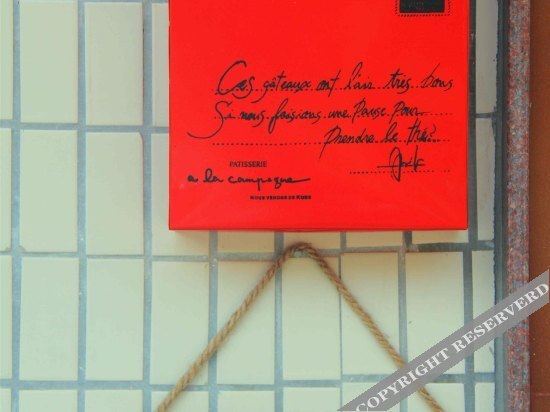 Ces gâteaux ont l'air très bons.
Si nous faisions une Pause pour
prendre le thé?
PATISSERIE
a la campagne
NOUS VENONS DE KOBE
COPYRIGHT RESERVERD